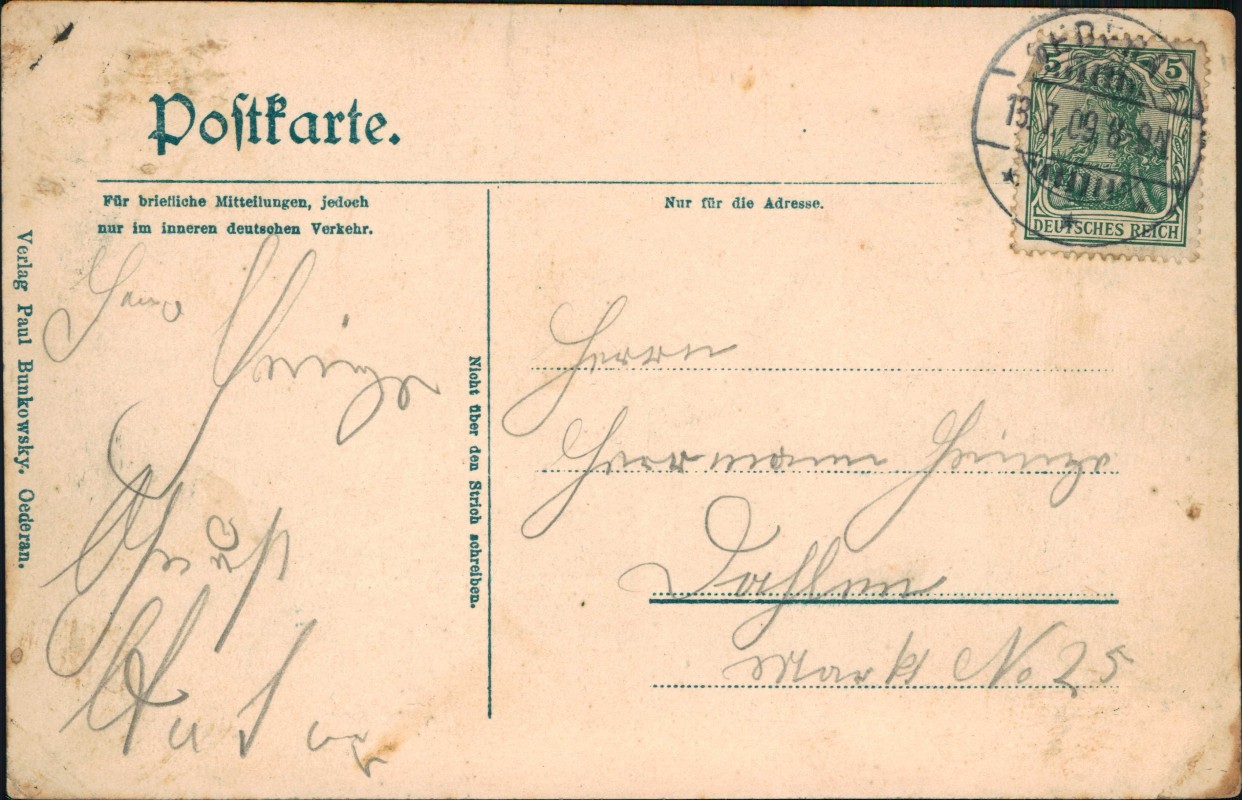 Postkarte.
Für briefliche Mitteilungen, jedoch
nur im inneren deutschen Verkehr.
Nur für die Adresse.
5 5
13.7.09.8-9N
DEUTSCHES REICH
Verlag Paul Bunkowsky. Oederan.
Nicht über den Strich schreiben.
Herrn
Herrmann Heinze
Dahlen
Markt No 25